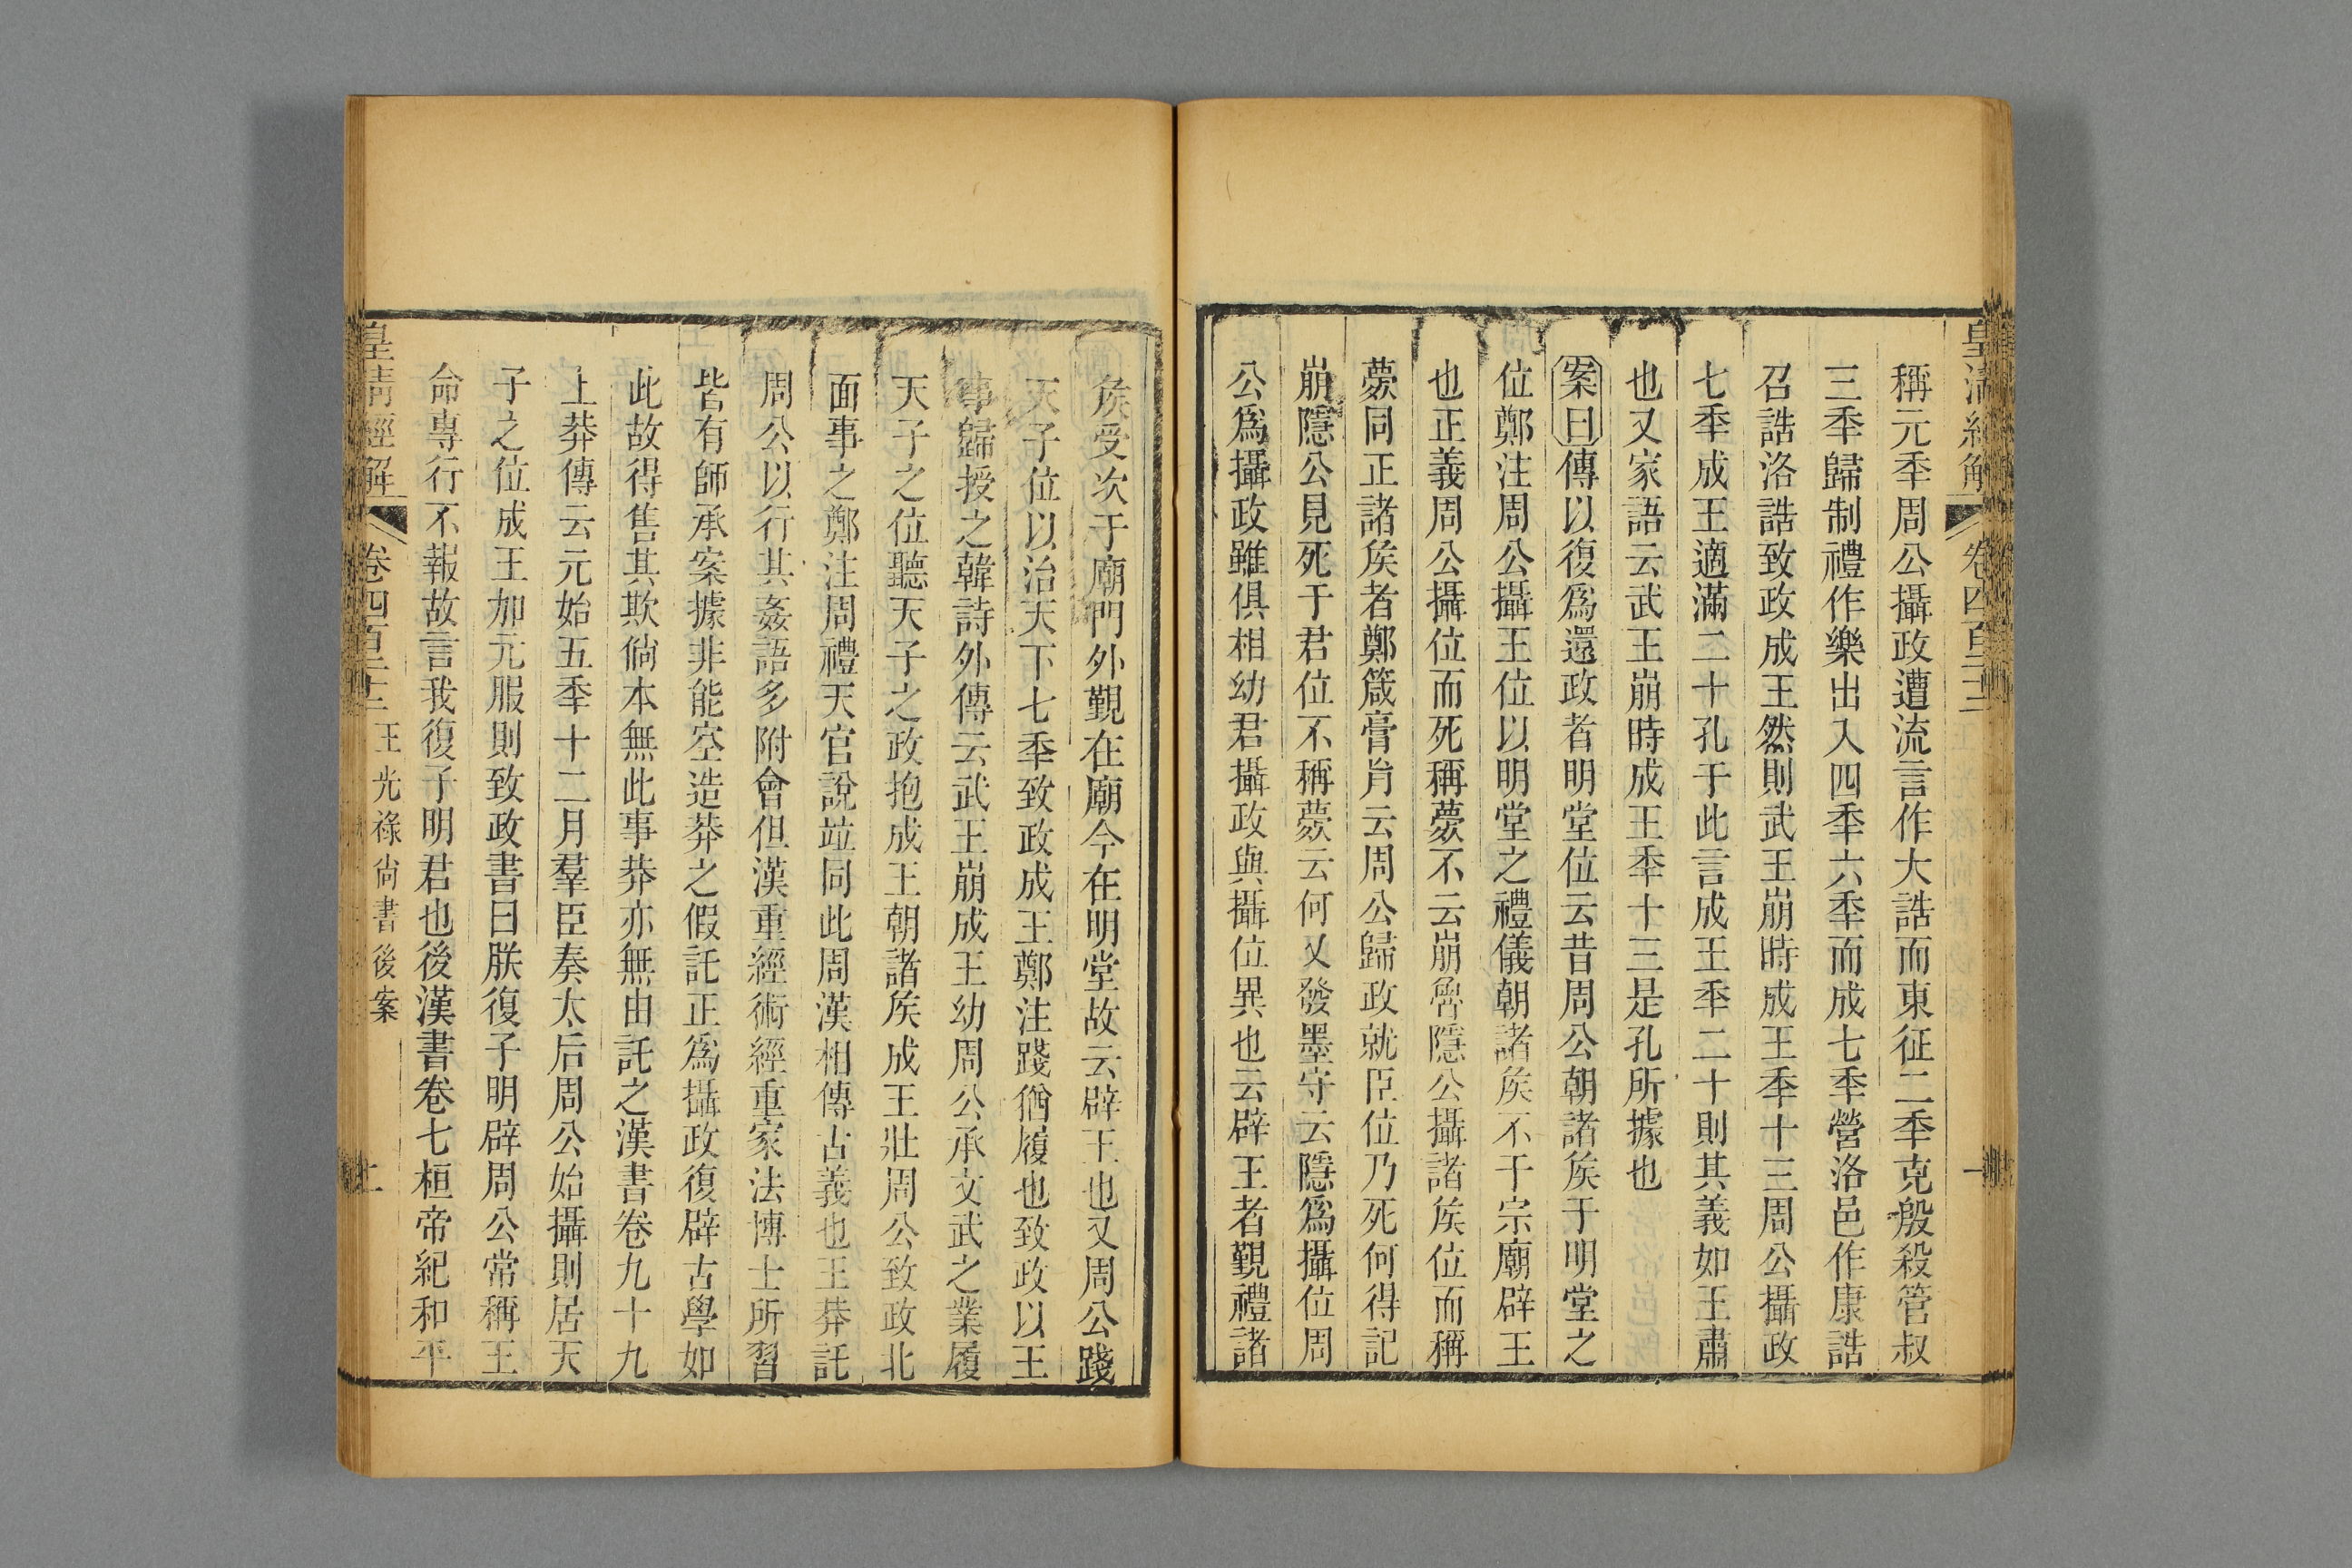 皇清經解 卷四百二十二
稱元秊周公攝政遭流言作大誥而東征二秊克殷殺管叔
三秊歸制禮作樂出入四秊六秊而成七秊營洛邑作康誥
召誥洛誥致政成王然則武王崩時成王秊十三周公攝政
七秊成王適滿二十孔于此言成王秊二十則其義如王肅
也又家語云武王崩時成王秊十三是孔所據也
案曰傳以復爲還政者明堂位云昔周公朝諸矦于明堂之
位鄭注周公攝王位以明堂之禮儀朝諸矦不于宗廟辟王
也正義周公攝位而死稱薨不云崩魯隱公攝諸矦位而稱
薨同正諸矦者鄭箴膏肓云周公歸政就臣位乃死何得記
崩隱公見死于君位不稱薨云何又發墨守云隱爲攝位周
公爲攝政雖俱相幼君攝政與攝位異也云辟王者覲禮諸
矦受次于廟門外覲在廟今在明堂故云辟王也又周公踐
天子位以治天下七秊致政成王鄭注踐猶履也致政以王
事歸授之韓詩外傳云武王崩成王幼周公承文武之業履
天子之位聽天子之政抱成王朝諸矦成王壯周公致政北
面事之鄭注周禮天官說竝同此周漢相傳古義也王莽託
周公以行其姦語多附會但漢重經術經重家法博士所習
皆有師承案據非能空造莽之假託正爲攝政復辟古學如
此故得售其欺倘本無此事莽亦無由託之漢書卷九十九
上莽傳云元始五秊十二月羣臣奏太后周公始攝則居天
子之位成王加元服則致政書曰朕復子明辟周公常稱王
命專行不報故言我復子明君也後漢書卷七桓帝紀和平
皇清經解 卷四百二十二 王光祿尙書後案 上